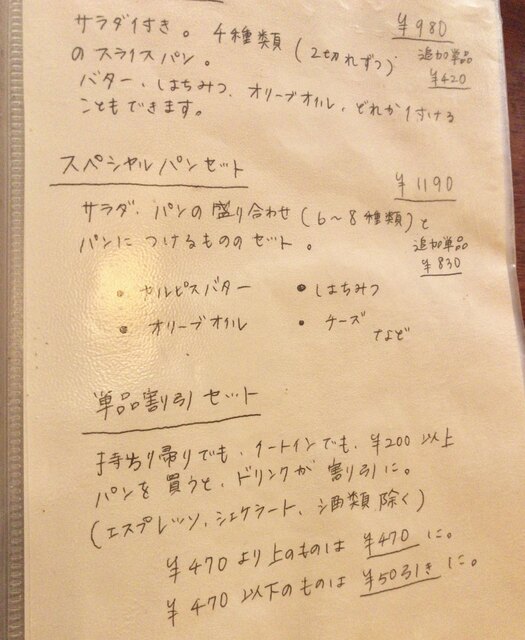 サラダ付き。4種類 (2切れずつ) ¥980
のスライスパン。 追加単品
¥420
バター、はちみつ、オリーブオイル、どれか1付ける
こともできます。
スペシャルパンセット
¥1190
サラダ、パンの盛り合わせ(6~8種類)と
パンにつけるもののセット。 追加単品
¥830
・カルピスバター ・はちみつ
・オリーブオイル ・チーズ
など
単品割引セット
持ち帰りでも、イートインでも、¥200以上
パンを買うと、ドリンクが割引に。
(エスプレッソ、シェケラート、酒類除く)
¥470より上のものは ¥470に。
¥470以下のものは ¥50引きに。